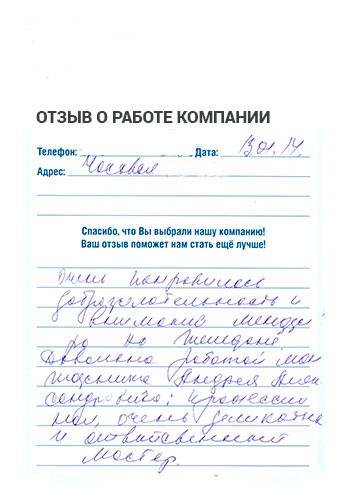 ОТЗЫВ О РАБОТЕ КОМПАНИИ
Телефон: Дата: 13.01.14.
Адрес:
Спасибо, что Вы выбрали нашу компанию!
Ваш отзыв поможет нам стать ещё лучше!
Очень понравилась
доброжелательность и
внимание менедже
ра по телефону.
Довольна работой мон
тажника Андрея Алек
сандровича: профессио
нал, очень деликатный
и ответственный
мастер.